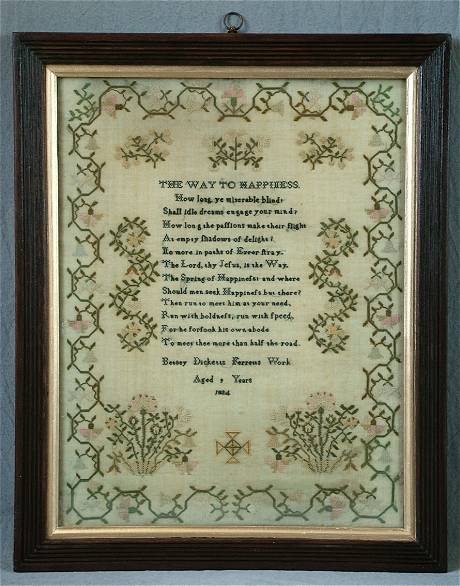 THE WAY TO HAPPINESS.
How long, ye miserable blind?
Shall idle dreams engage your mind?
How long the paſſions make their flight
At empty ſhadows of delight?
No more in paths of Error ſtray.
The Lord, thy Jeſus, is the Way.
The Spring of Happineſs: and where
Should men ſeek Happineſs but there?
Then run to meet him at your need,
Run with boldneſs, run with ſpeed,
For he forſook his own abode
To meet thee more than half the road.
Betsey Dicketts Ferrens Work
Aged 9 Years
1824